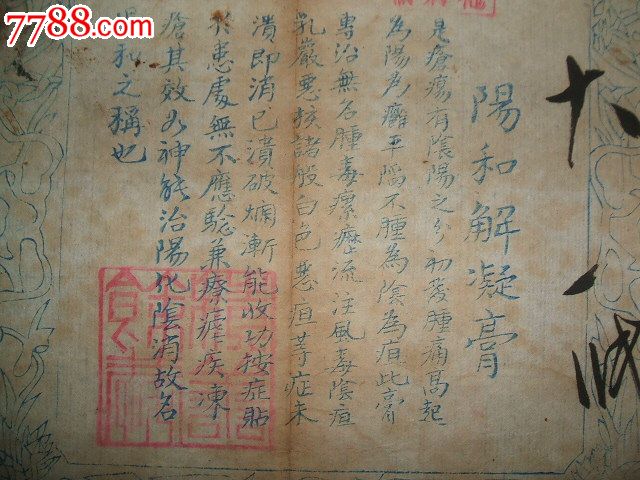 7788.com
陽和解凝膏
是瘡瘍有陰陽之分初發腫痛高起
為陽為癰平陷不腫為陰為疽此膏
專治無名腫毒瘰癧流注風毒陰疽
乳嚴惡核諸般白色惡疽等症未
潰即消已潰破爛漸能收功按症貼
於患處無不應驗兼療瘧疾凍
瘡其效如神能治陽化陰消故名
陽和之稱也